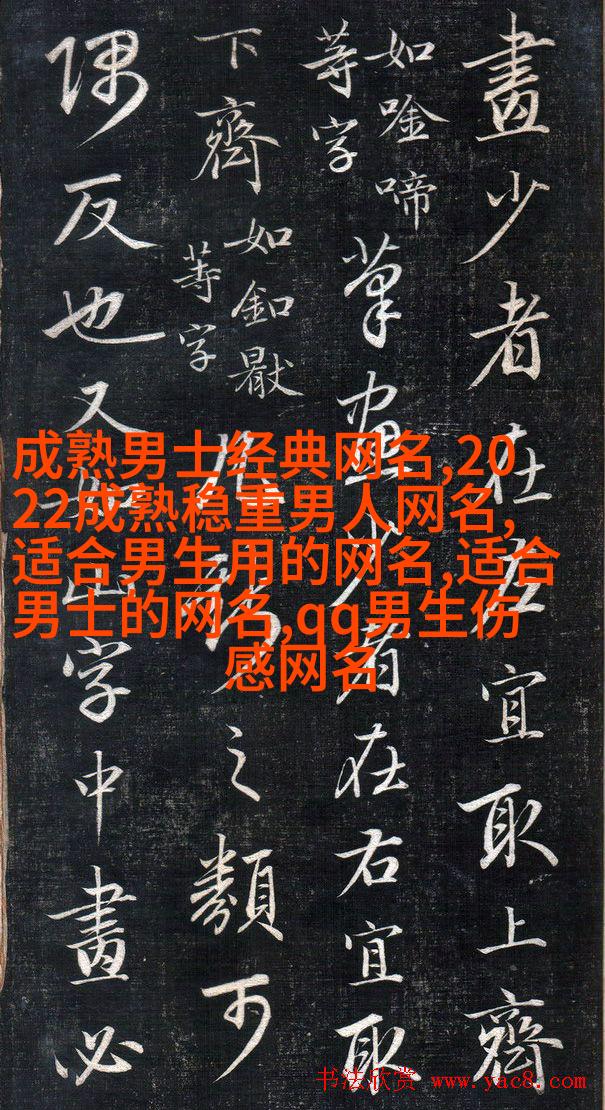 畫少者在左宜取上齊
如唫啼
等字
筆畫少者在右宜取
下齊
如釦
等字
之類可
隅反也又如山字中畫必
成熟男士经典网名,20
22成熟稳重男人网名,
适合男生用的网名,适合
男士的网名,qq男生伤
感网名
书法欣赏 www.yac8.com